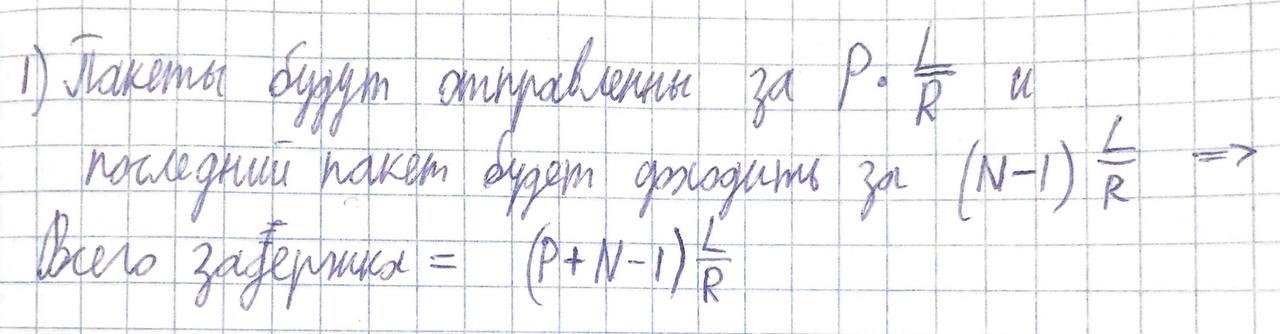 1) Пакеты будут отправленны за P · L/R и
последний пакет будет доходить за (N-1) L/R =>
Всего задержка = (P+N-1) L/R